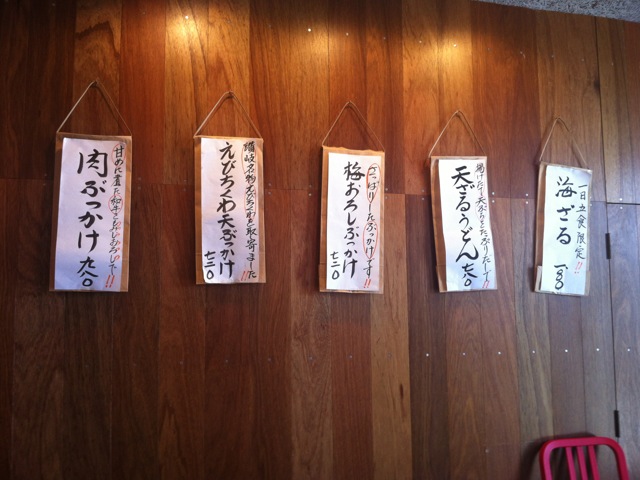 一日五食限定!!
海ざる
揚げたて天ぷらをたっぷりだしで!!
天ざるうどん
さっぱりしたぶっかけです!!
梅おろしぶっかけ
七三〇
讃岐名物えびちくわを取寄ました!!
えびちくわ天ぶっかけ
七三〇
甘めに煮た和牛と
肉ぶっかけ
九八〇